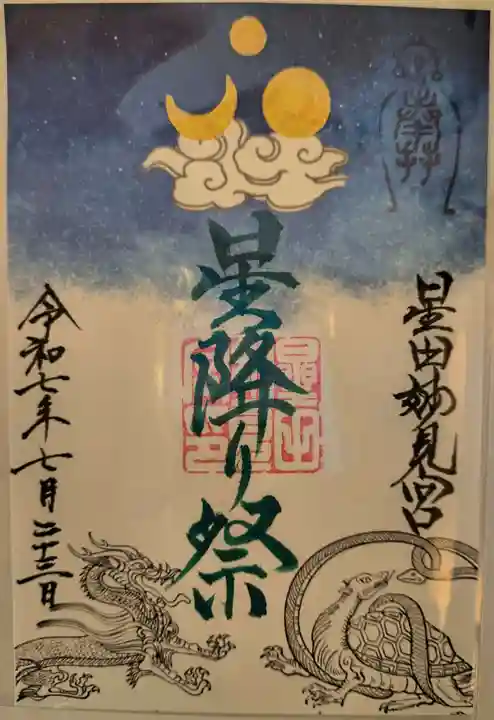 奉拝
星田妙見宮
星降り祭
令和七年七月二十三日